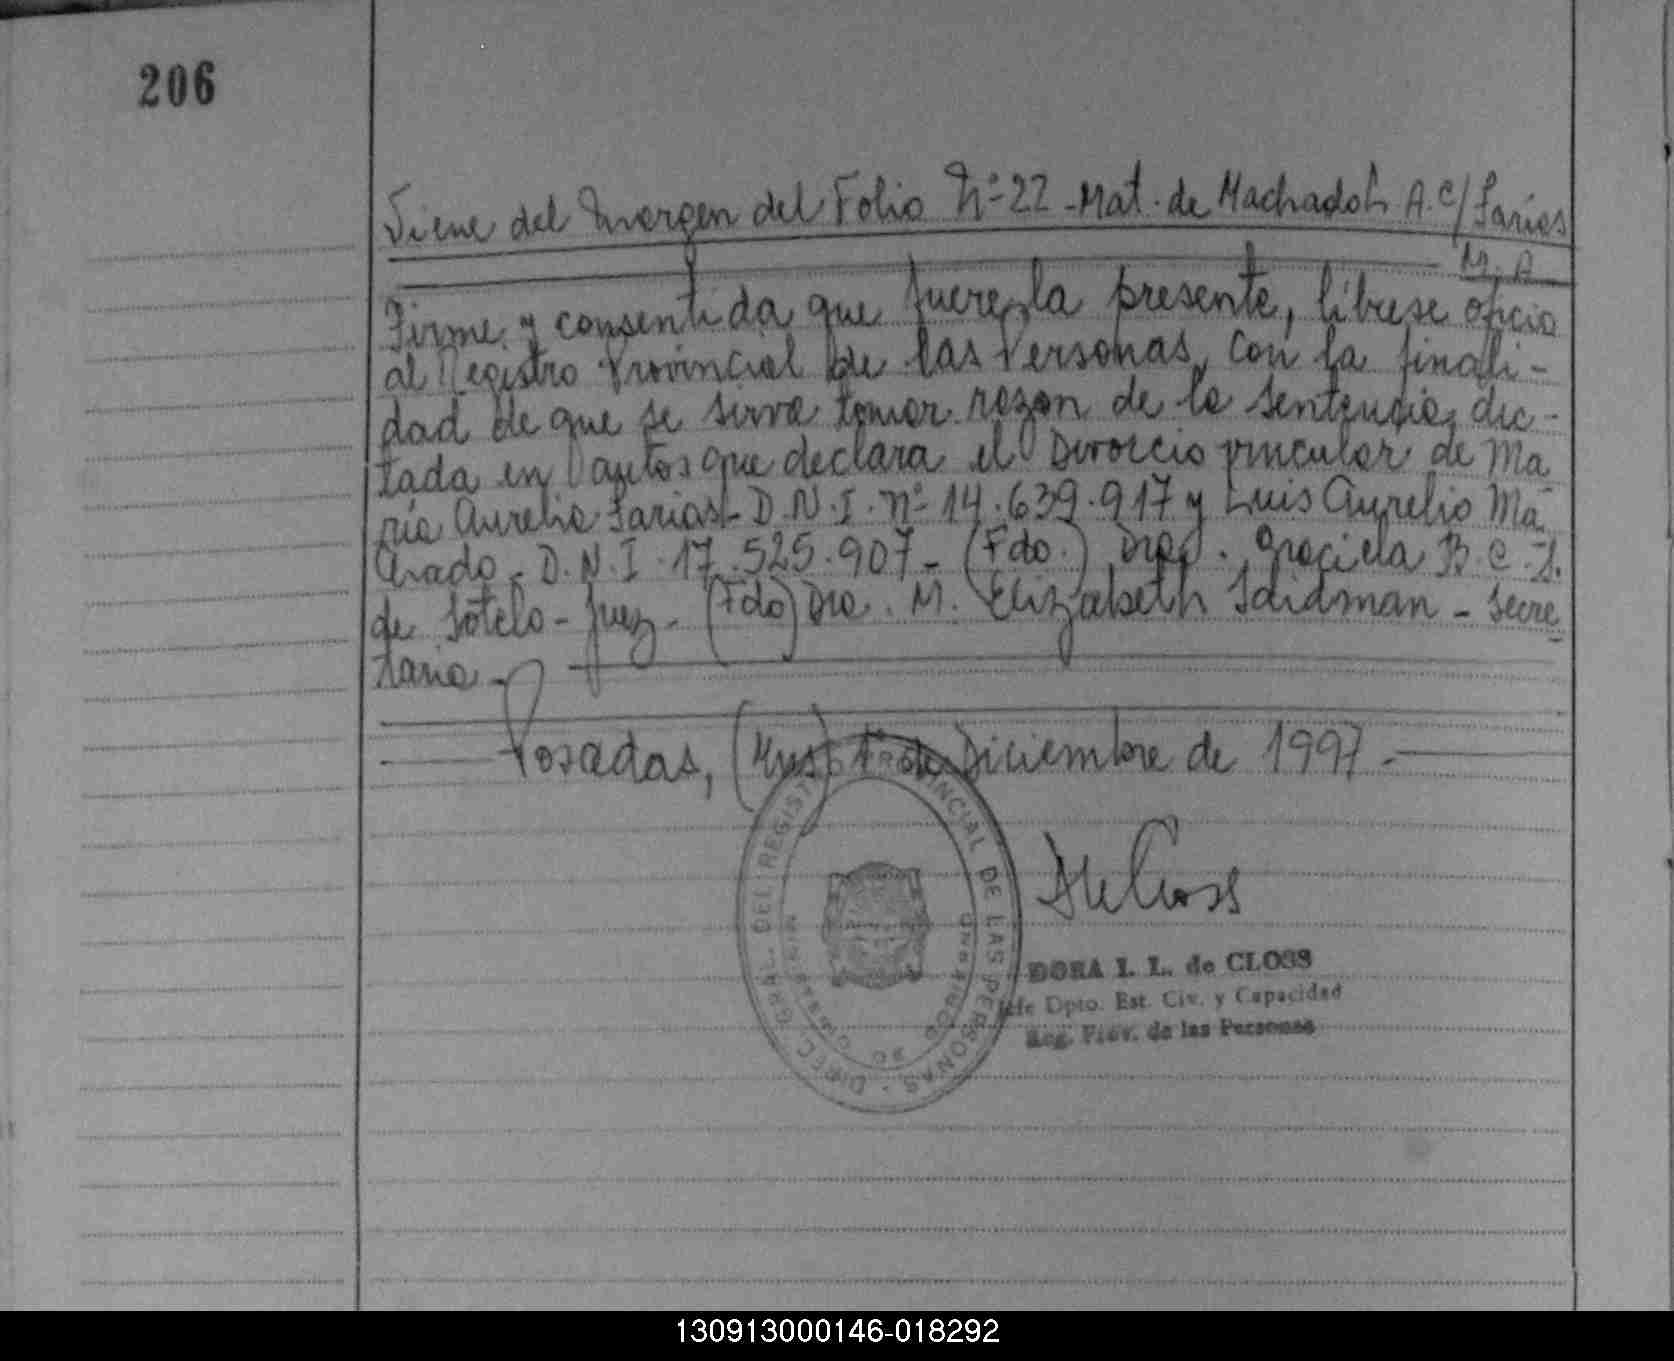 206
Viene del Margen del Folio Nº 22 - Mat. de Machado L A. C/ Farías
M. A
Firme y consentida que fuere la presente, líbrese oficio
al Registro Provincial de las Personas, con la finali-
dad de que se sirva tomar razon de la sentencia, dic-
tada en autos que declara el Divorcio vincular de Ma
ría Aurelia Farias - D.N.I. nº 14.639.917 y Luis Aurelio Ma-
chado - D.N.I. 17.525.907 - (Fdo.) Dra. Graciela B. C. S.
de Sotelo - Juez - (Fdo) Dra. M. Elizabeth Saidman - Secre
taria -
Posadas, (Mnes) 1º de Diciembre de 1997 -
DIREC. GRAL. DEL REGISTRO PROVINCIAL DE LAS PERSONAS
MINISTERIO DE GOBIERNO
DORA I. L. de CLOSS
Jefe Dpto. Est. Civ. y Capacidad
Reg. Prov. de las Personas
130913000146-018292